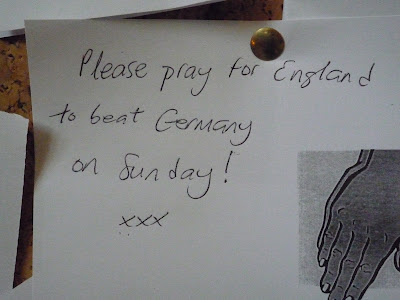 Please pray for England
to beat Germany
on Sunday!
xxx